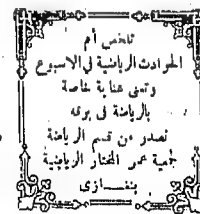 تلخص أم
الحوادث الرياضية في الاسبوع
وتعنى عناية خاصة
بالرياضة في برقه
تصدر عن قسم الرياضة
جمعية عمر المختار الرياضية
بنغازى